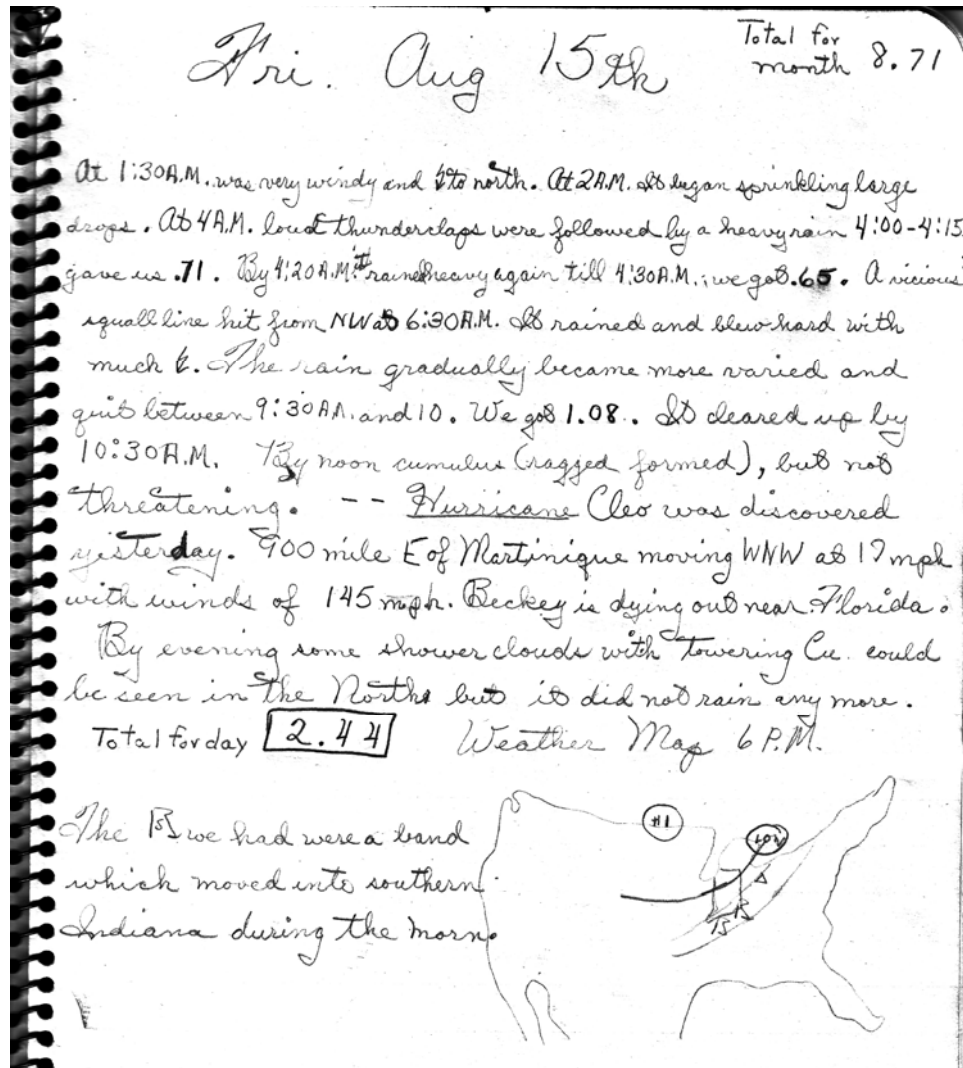 Fri. Aug 15th
Total for
month 8.71
At 1:30A.M. was very windy and to north. At 2A.M. It began sprinkling large
drops. At 4A.M. loud thunderclaps were followed by a heavy rain 4:00-4:15
gave us .71. By 4:20A.M. it rained heavy again till 4:30A.M.; we got .65. A vicious
squall line hit from NW at 6:30A.M. It rained and blew hard with
much . The rain gradually became more varied and
quit between 9:30A.M. and 10. We got 1.08. It cleared up by
10:30A.M. By noon cumulus (ragged formed), but not
threatening. -- Hurricane Cleo was discovered
yesterday. 900 mile E of Martinique moving WNW at 17 mph
with winds of 145 mph. Beckey is dying out near Florida.
By evening some shower clouds with towering Cu. could
be seen in the North but it did not rain any more.
Total for day 2.44 Weather Map 6 P.M.
The we had were a band
which moved into southern
Indiana during the morn.
HI
LOW